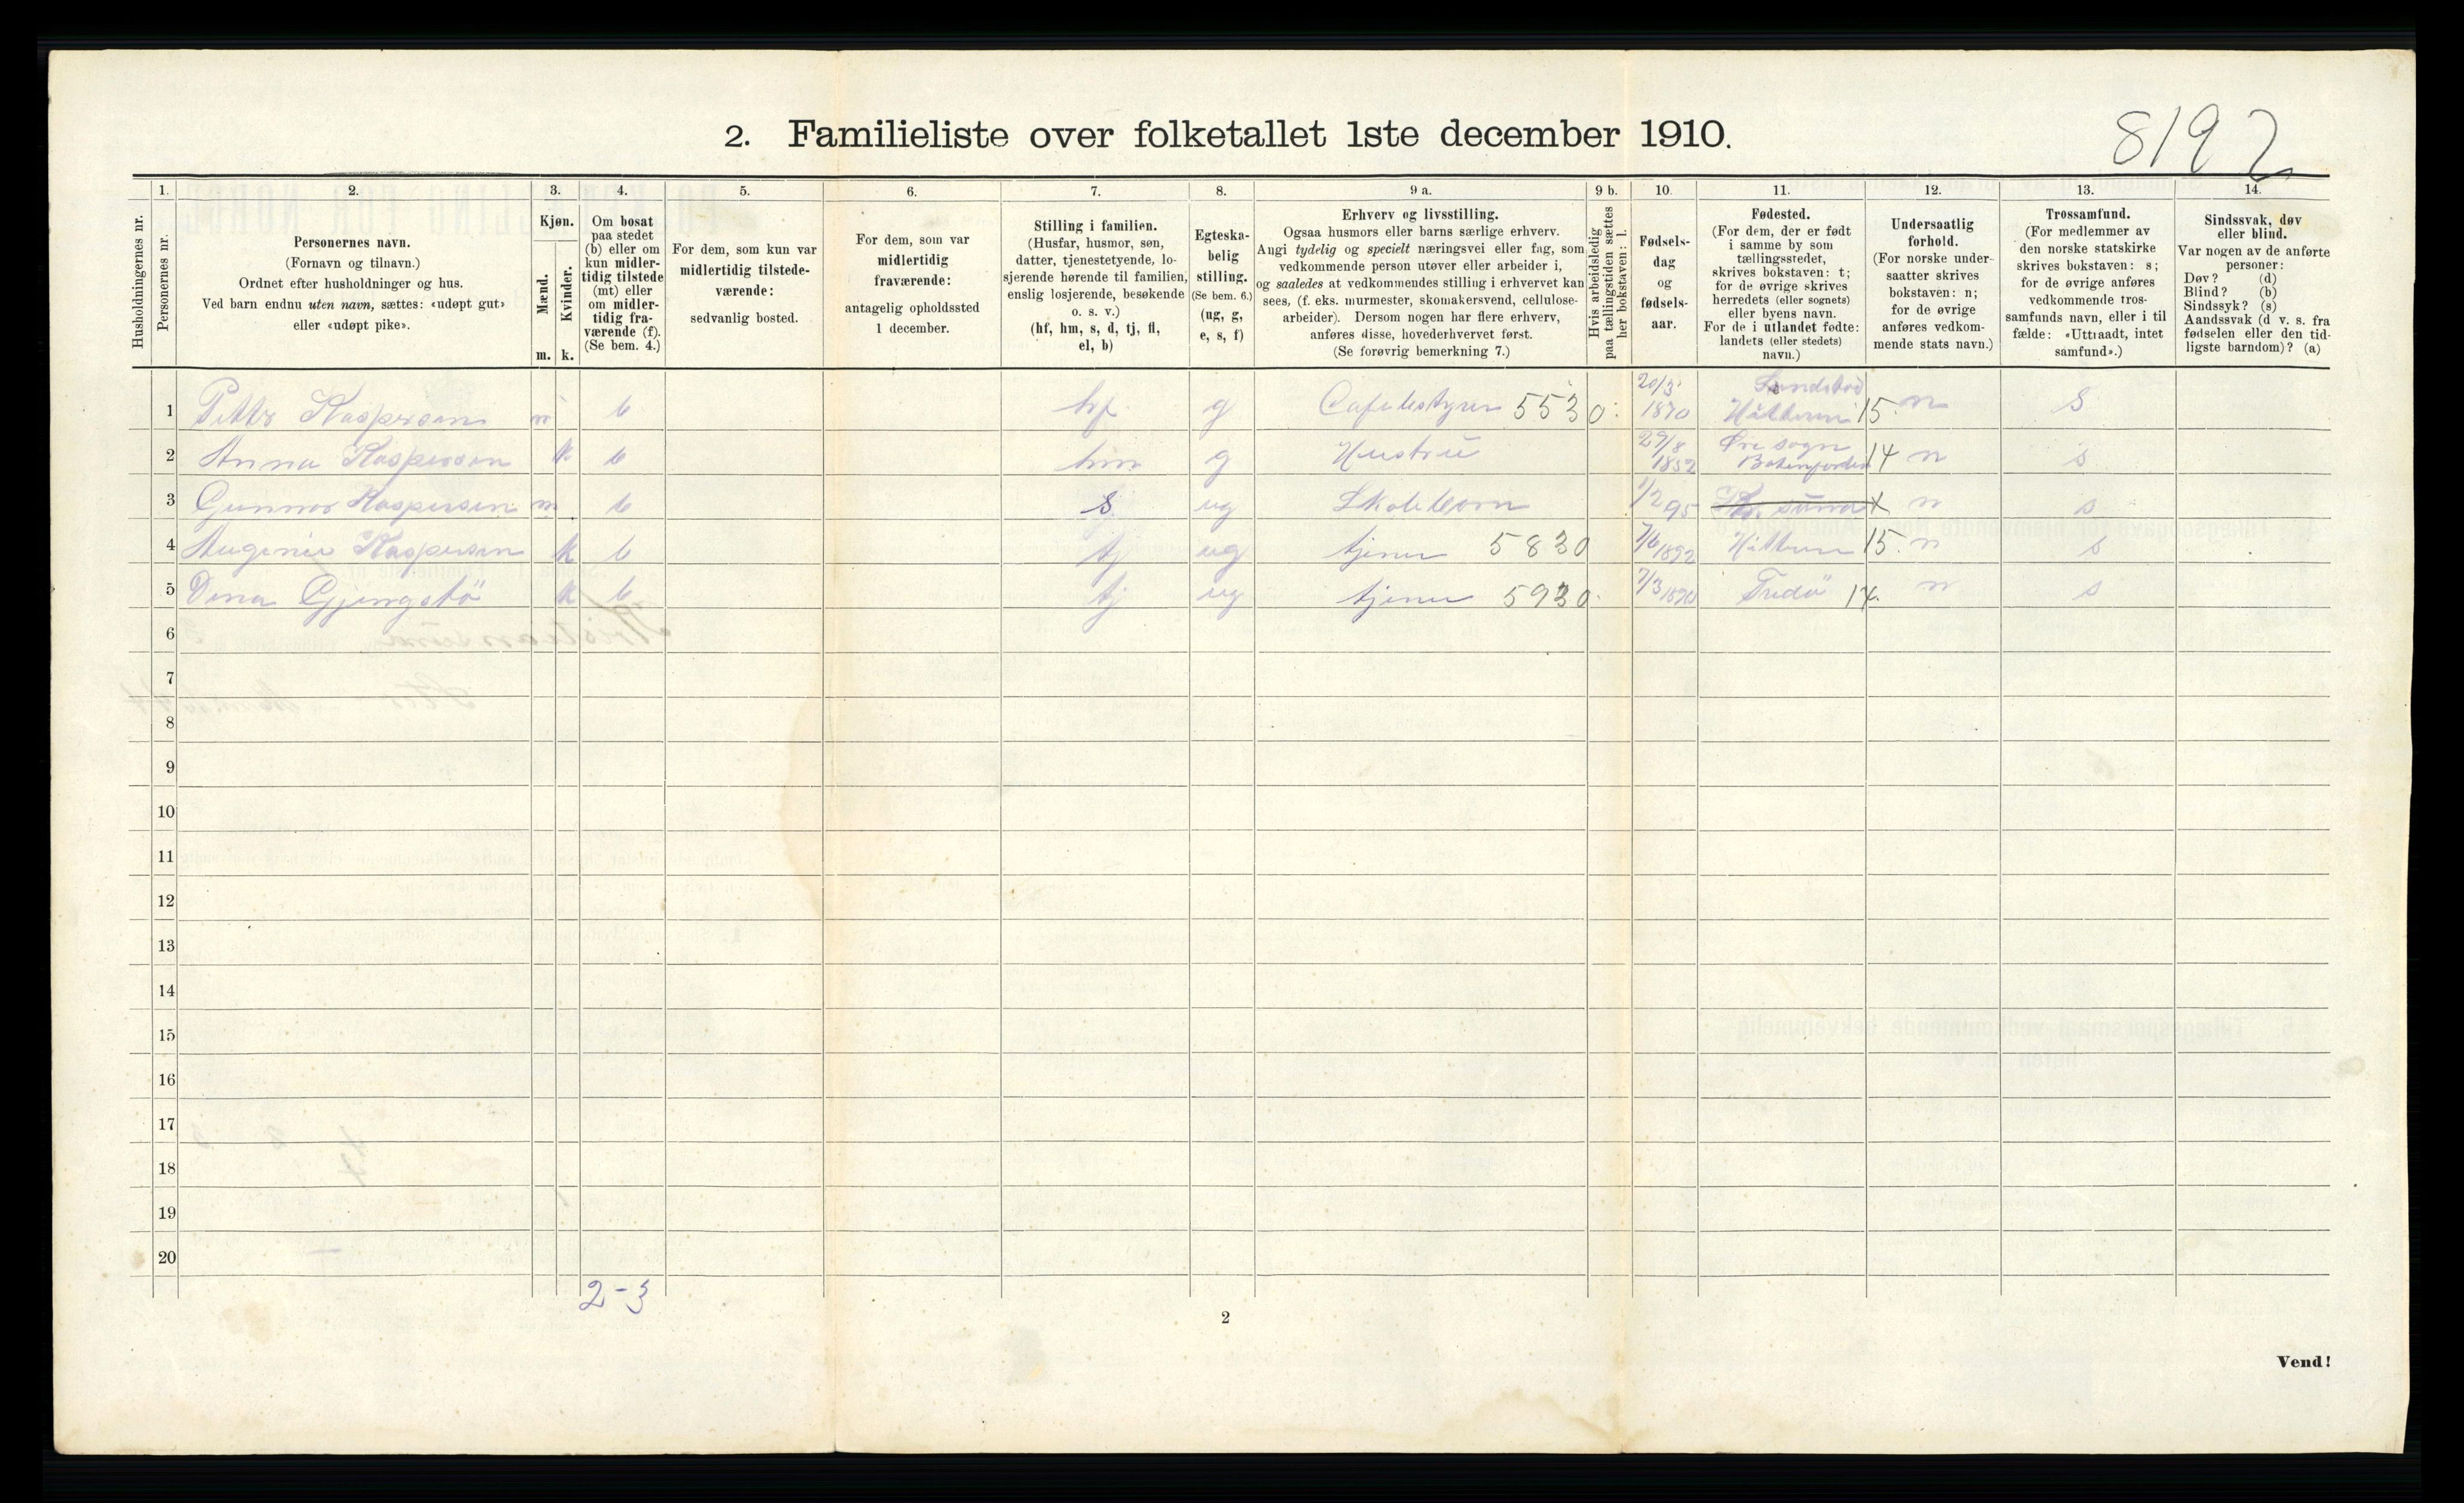 8192
2. Familieliste over folketallet 1ste december 1910.
1. 2. 3. 4. 5. 6. 7. 8. 9 a. 9 b. 10. 11. 12. 13. 14.
Husholdningernes nr.
Personernes nr.
Personernes navn.
(Fornavn og tilnavn.)
Ordnet efter husholdninger og hus.
Ved barn endnu uten navn, sættes: «udøpt gut»
eller «udøpt pike».
Kjøn.
Mænd.
Kvinder.
m. k.
Om bosat
paa stedet
(b) eller om
kun midler-
tidig tilstede
(mt) eller
om midler-
tidig fra-
værende (f).
(Se bem. 4.)
For dem, som kun var
midlertidig tilstede-
værende:
sedvanlig bosted.
For dem, som var
midlertidig
fraværende:
antagelig opholdssted
1 december.
Stilling i familien.
(Husfar, husmor, søn,
datter, tjenestetyende, lo-
sjerende hørende til familien,
enslig losjerende, besøkende
o. s. v.)
(hf, hm, s, d, tj, fl,
el, b)
Egteska-
belig
stilling.
(Se bem. 6.)
(ug, g,
e, s, f)
Erhverv og livsstilling.
Ogsaa husmors eller barns særlige erhverv.
Angi tydelig og specielt næringsvei eller fag, som
vedkommende person utøver eller arbeider i,
og saaledes at vedkommendes stilling i erhvervet kan
sees, (f. eks. murmester, skomakersvend, cellulose-
arbeider). Dersom nogen har flere erhverv,
anføres disse, hovederhvervet først.
(Se forøvrig bemerkning 7.)
Hvis arbeidsledig
paa tællingstiden sættes
her bokstaven: l.
Fødsels-
dag
og
fødsels-
aar.
Fødested.
(For dem, der er født
i samme by som
tællingsstedet,
skrives bokstaven: t;
for de øvrige skrives
herredets (eller sognets)
eller byens navn.
For de i utlandet fødte:
landets (eller stedets)
navn.)
Undersaatlig
forhold.
(For norske under-
saatter skrives
bokstaven: n;
for de øvrige
anføres vedkom-
mende stats navn.)
Trossamfund.
(For medlemmer av
den norske statskirke
skrives bokstaven: s;
for de øvrige anføres
vedkommende tros-
samfunds navn, eller i til
fælde: «Uttraadt, intet
samfund».)
Sindssvak, døv
eller blind.
Var nogen av de anførte
personer:
Døv? (d)
Blind? (b)
Sindssyk? (s)
Aandssvak (d v. s. fra
fødselen eller den tid-
ligste barndom)? (a)
1 Kaspersen m b hf g Cafebestyrer 5530 20/3 1870 Hitteren 15 n s
2 Anna Kaspersen k b hm g Hustru 29/8 1852 Øre sogn 14 n s
3 Gunnar Kaspersen m b s ug Skolebarn 1/2 95 t n s
4 Kaspersen k b tj ug tjener 5830 7/6 1892 Hitteren 15 n s
5 Dina k b tj ug tjener 5930 7/3 14 n s
6
7
8
9
10
11
12
13
14
15
16
17
18
19
20
2-3
2
Vend!